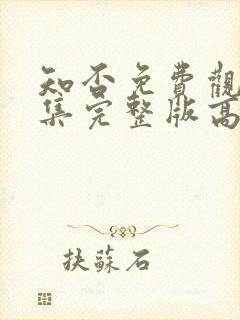 知否免費觀
集完整版高
扶蘇石